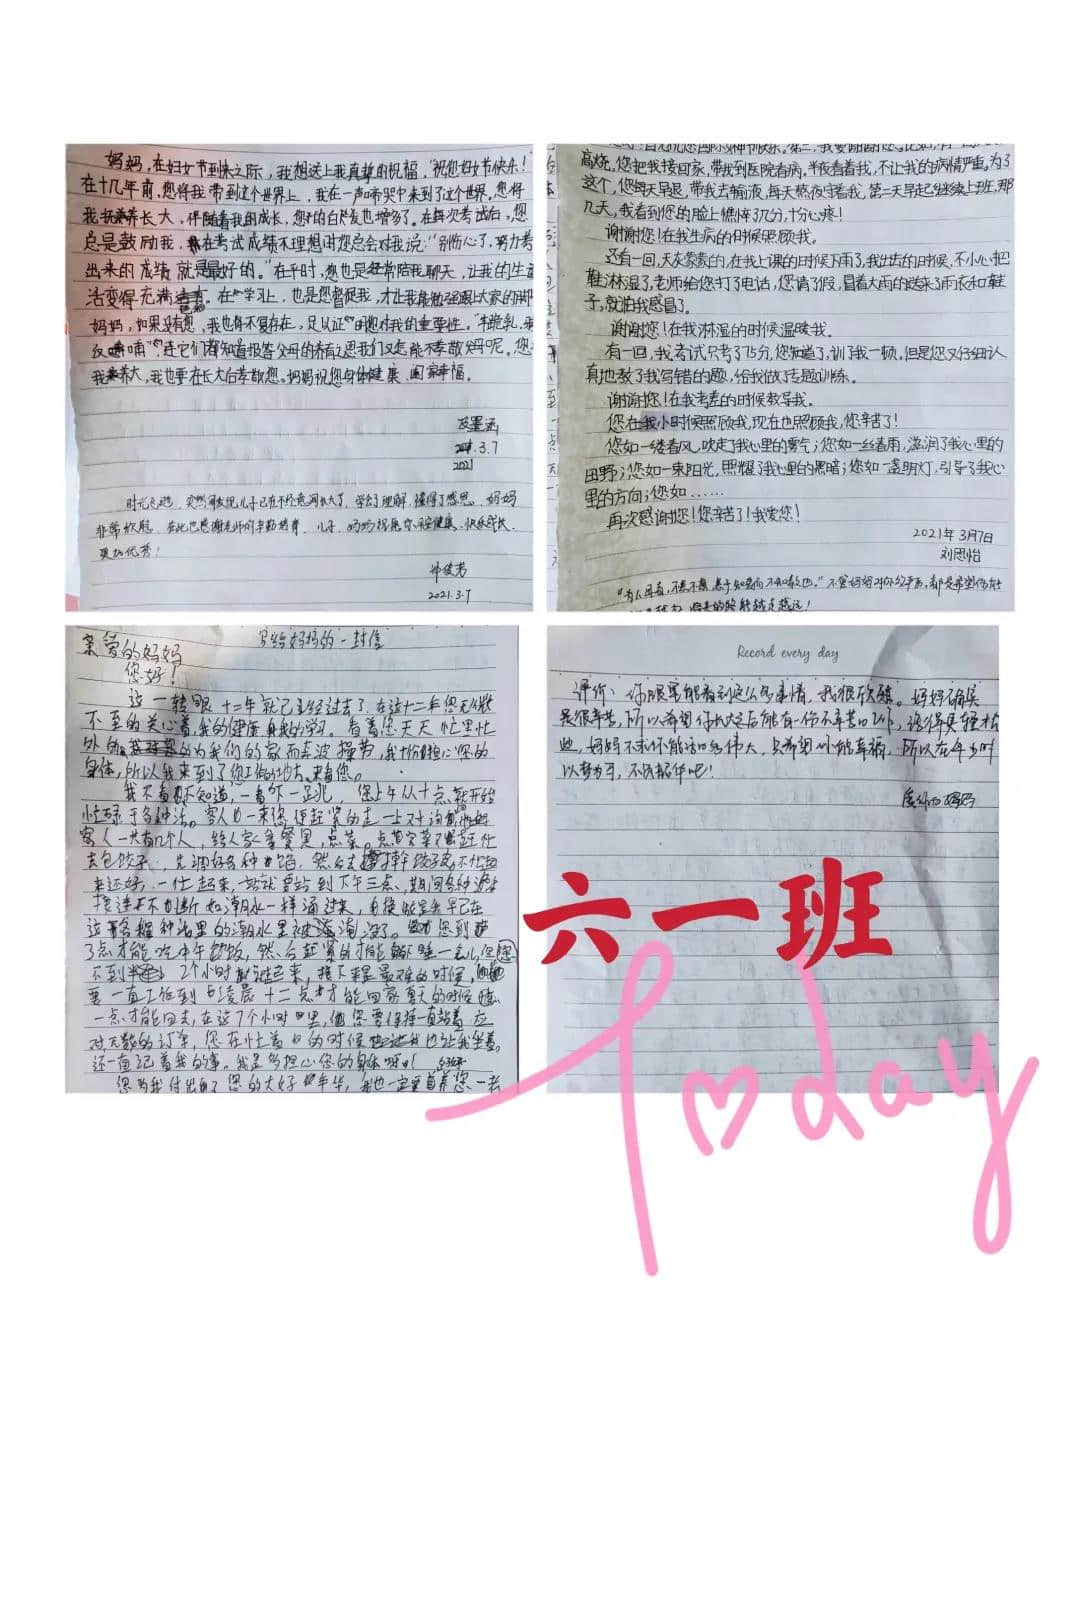 妈妈，在妇女节到来之际，我想送上我真挚的祝福，"祝您妇女节快乐！
在十几年前，您将我带到这个世界上，我在一声啼哭中来到了这个世界，您将
我抚养长大，伴随着我的成长，您的白发也增多了。在每次考试后，您
总是鼓励我，在考试成绩不理想时您总会对我说："别伤心了，努力考
出来的成绩就是最好的。"在平时，您也是经常陪我聊天，让我的生
活变得充满。在学习上，也是您督促我，才让我
妈妈，如果没有您，我也将不复存在，足以证明您对我的重要性。"羊跪乳，
反哺"，连它们都知道报答父母的养育之恩我们又怎能不孝敬父母呢，您
我养大，我也要在长大后孝敬您。妈妈祝您身体健康、阖家幸福。
3.7
2021
时光飞逝，突然间发现儿子已在不经意间长大了，学会了理解，懂得了感恩，妈妈
非常欣慰，在此也感谢老师的辛勤培育，儿子，妈妈祝愿你平安健康、快乐成长、
更加优秀！
2021.3.7
高烧，您把我接回家，带我到医院看病。半夜看着我，不让我的病情严重。为了
这个，您每天早退，带我去输液，每天熬夜守着我，第二天早起继续上班，那
几天，我看到您的脸上憔悴了几分，十分心疼！
谢谢您！在我生病的时候照顾我。
还有一回，天灰蒙蒙的，在我上课的时候下雨了，我出去的时候，不小心把
鞋淋湿了，老师给您打了电话，您请了假，冒着大雨的送来了雨衣和鞋
子，就怕我感冒了。
谢谢您！在我淋湿的时候温暖我。
有一回，我考试只考了75分，您知道了，训了我一顿，但是您又仔细认
真地教了我写错的题，给我做了专题训练。
谢谢您！在我考差的时候教导我。
您在我小时候照顾我，现在也照顾我，您辛苦了！
您如一缕春风，吹走了我心里的雾气；您如一丝春雨，滋润了我心里的
田野；您如一束阳光，照耀了我心里的黑暗；您如一盏明灯，引导了我心
里的方向；您如……
再次感谢您！您辛苦了！我爱您！
2021年3月7日
刘思怡
写给妈妈的一封信
亲爱的妈妈
您好！
这一转眼十二年就已经过去了，在这十二年您无微
不至的关心着我的健康和我的学习。看着您天天忙里忙
外的为我们的家而奔波操劳，我十分担心您的
身体，所以我来到了您工作的地方来看您。
我不看不知道，一看吓一跳，您上午从十点就开始
忙碌于各种活。客人一来您便赶紧的走上去询问
客人一共有几个人，给人家拿餐具，点菜。点完菜又赶忙
去包饺子，先调好各种馅，然后去擀饺子皮，不忙起
来还好，一忙起来，站就要站到下午三点，期间各种
接连不断如潮水一样涌过来，
这各种活里的潮水里被淹没了。您到
了点才能吃中午饭，然后赶紧的才能睡一会儿，但
不到2个小时就起来，接下来是最难的时候，
要一直工作到凌晨十二点才能回家夏天的时候
一点才能回去，在这7个小时里，您要保持一直站着应
对无数的订单，您在忙着的时候也让我坐着，
还一直记着我的事。我是多担心您的身体呀！
您为我付出了您的大好年华，我也一定要养您一老
Record every day
评价：你眼里能看到这么多事情，我很欣慰。妈妈确实
是很辛苦，所以希望你长大之后能有一份不辛苦的工作，活得更轻松
些，妈妈不求你能活的多伟大，只希望你能幸福，所以在年少时
以梦为马，不负韶华吧！
六一班
Today